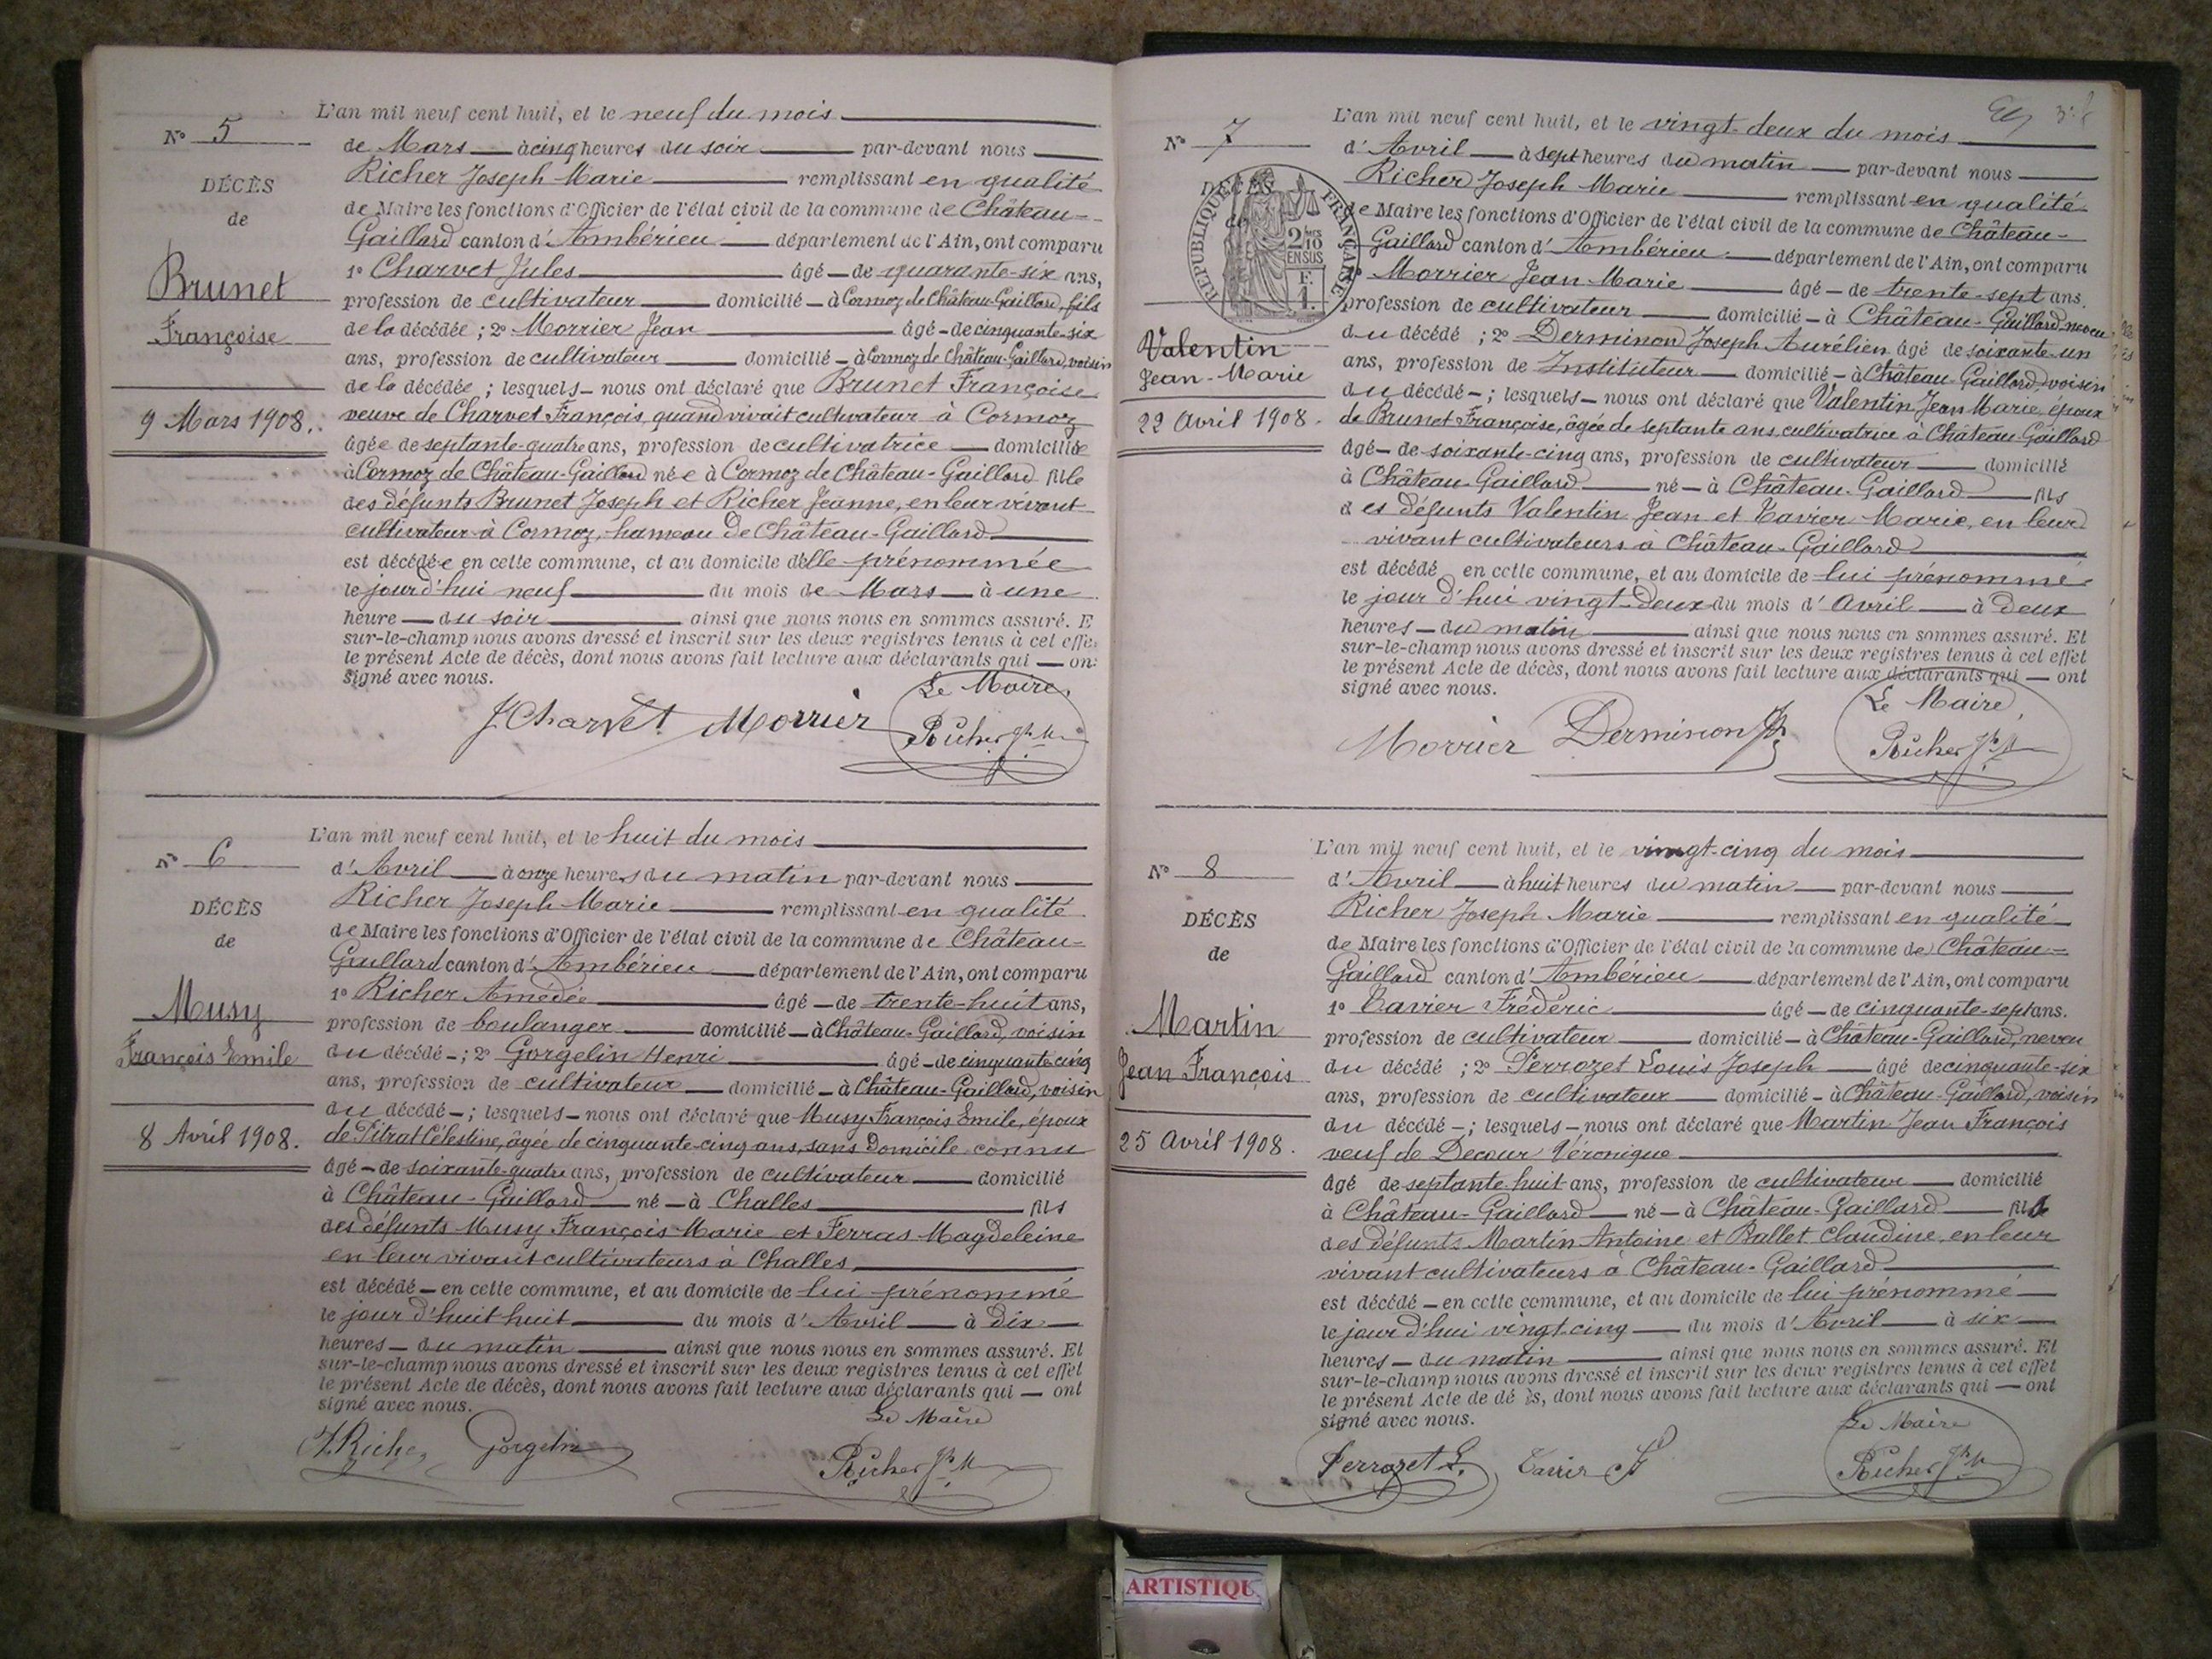 N° 5
DÉCÈS
de
Brunet
Françoise
9 Mars 1908.
L'an mil neuf cent huit, et le neuf du mois
de Mars à cinq heures du soir par-devant nous
Richer Joseph Marie remplissant en qualité
de Maire les fonctions d'Officier de l'état civil de la commune de Château-
Gaillard canton d'Ambérieu département de l'Ain, ont comparu
1° Charvet Jules âgé de quarante-six ans,
profession de cultivateur domicilié à Cormoz de Château-Gaillard, fils
de la décédée ; 2° Morrier Jean âgé de cinquante-six
ans, profession de cultivateur domicilié à Cormoz de Château-Gaillard, voisin
de la décédée ; lesquels nous ont déclaré que Brunet Françoise
veuve de Charvet François, quand vivait cultivateur à Cormoz
âgée de septante-quatre ans, profession de cultivatrice domiciliée
à Cormoz de Château-Gaillard née à Cormoz de Château-Gaillard fille
des défunts Brunet Joseph et Richer Jeanne, en leur vivant
cultivateur à Cormoz, hameau de Château-Gaillard
est décédée en cette commune, et au domicile d'elle prénommée
le jourd'hui neuf du mois de Mars à une
heure du soir ainsi que nous nous en sommes assuré. E
sur-le-champ nous avons dressé et inscrit sur les deux registres tenus à cet effe
le présent Acte de décès, dont nous avons fait lecture aux déclarants qui on
signé avec nous.
Le Maire,
J. Charvet Morrier Richer Jh M
N° 6
DÉCÈS
de
Musy
François Emile
8 Avril 1908.
L'an mil neuf cent huit, et le huit du mois
d'Avril à onze heures du matin par-devant nous
Richer Joseph Marie remplissant en qualité
de Maire les fonctions d'Officier de l'état civil de la commune de Château-
Gaillard canton d'Ambérieu département de l'Ain, ont comparu
1° Richer Amédée âgé de trente-huit ans,
profession de boulanger domicilié à Château-Gaillard, voisin
du décédé ; 2° Gorgelin Henri âgé de cinquante cinq
ans, profession de cultivateur domicilié à Château-Gaillard, voisin
du décédé ; lesquels nous ont déclaré que Musy François Emile, époux
de Pitrat Célestine, âgée de cinquante-cinq ans, sans domicile connu
âgé de soixante-quatre ans, profession de cultivateur domicilié
à Château-Gaillard né à Challes fils
des défunts Musy François Marie et Ferras Magdeleine
en leur vivant cultivateurs à Challes,
est décédé en cette commune, et au domicile de lui prénommé
le jour d'huit huit du mois d'Avril à dix
heures du matin ainsi que nous nous en sommes assuré. Et
sur-le-champ nous avons dressé et inscrit sur les deux registres tenus à cet effet
le présent Acte de décès, dont nous avons fait lecture aux déclarants qui ont
signé avec nous.
Le Maire
A. Richer Gorgelin Richer Jh M
N° 7
DÉCÈS
de
RÉPUBLIQUE FRANÇAISE
2/10 EN SUS
F. 1.
Valentin
Jean-Marie
22 Avril 1908.
L'an mil neuf cent huit, et le vingt-deux du mois
d'Avril à sept heures du matin par-devant nous
Richer Joseph Marie remplissant en qualité
de Maire les fonctions d'Officier de l'état civil de la commune de Château-
Gaillard canton d'Ambérieu département de l'Ain, ont comparu
Morrier Jean Marie âgé de trente-sept ans.
profession de cultivateur domicilié à Château-Gaillard, neveu
du décédé ; 2° Derminon Joseph Aurélien âgé de soixante-un
ans, profession de Instituteur domicilié à Château-Gaillard, voisin
du décédé ; lesquels nous ont déclaré que Valentin Jean Marie, époux
de Brunet Françoise, âgée de septante ans, cultivatrice à Château-Gaillard
âgé de soixante-cinq ans, profession de cultivateur domicilié
à Château-Gaillard né à Château-Gaillard fils
des défunts Valentin Jean et Tavier Marie, en leur
vivant cultivateurs à Château-Gaillard
est décédé en cette commune, et au domicile de lui prénommé
le jour d'hui vingt-deux du mois d'Avril à deux
heures du matin ainsi que nous nous en sommes assuré. Et
sur-le-champ nous avons dressé et inscrit sur les deux registres tenus à cet effet
le présent Acte de décès, dont nous avons fait lecture aux déclarants qui ont
signé avec nous.
Le Maire,
Morrier Derminon Jh Richer Jh M
N° 8
DÉCÈS
de
Martin
Jean François
25 Avril 1908.
L'an mil neuf cent huit, et le vingt-cinq du mois
d'Avril à huit heures du matin par-devant nous
Richer Joseph Marie remplissant en qualité
de Maire les fonctions d'Officier de l'état civil de la commune de Château-
Gaillard canton d'Ambérieu département de l'Ain, ont comparu
1° Tavier Frédéric âgé de cinquante-sept ans.
profession de cultivateur domicilié à Château-Gaillard, neveu
du décédé ; 2° Perrozet Louis Joseph âgé de cinquante-six
ans, profession de cultivateur domicilié à Château-Gaillard, voisin
du décédé ; lesquels nous ont déclaré que Martin Jean François
veuf de Decour Véronique
âgé de septante-huit ans, profession de cultivateur domicilié
à Château-Gaillard né à Château-Gaillard fils
des défunts Martin Antoine et Ballet Claudine, en leur
vivant cultivateurs à Château-Gaillard
est décédé en cette commune, et au domicile de lui prénommé
le jour d'hui vingt-cinq du mois d'Avril à six
heures du matin ainsi que nous nous en sommes assuré. Et
sur-le-champ nous avons dressé et inscrit sur les deux registres tenus à cet effet
le présent Acte de dé ès, dont nous avons fait lecture aux déclarants qui ont
signé avec nous.
Le Maire
Perrozet L. Tavier F Richer Jh M
ARTISTIQU